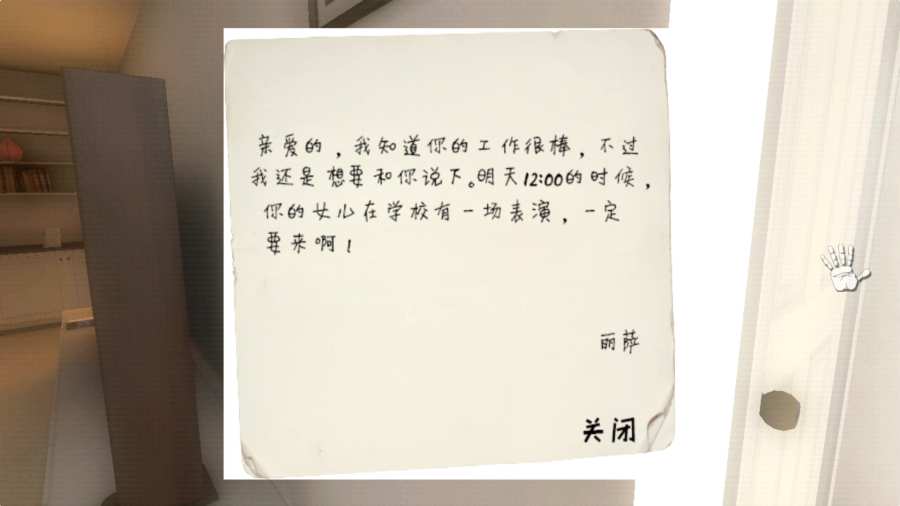 亲爱的，我知道你的工作很棒，不过
我还是想要和你说下。明天12:00的时候，
你的女儿在学校有一场表演，一定
要来啊！
丽萨
关闭